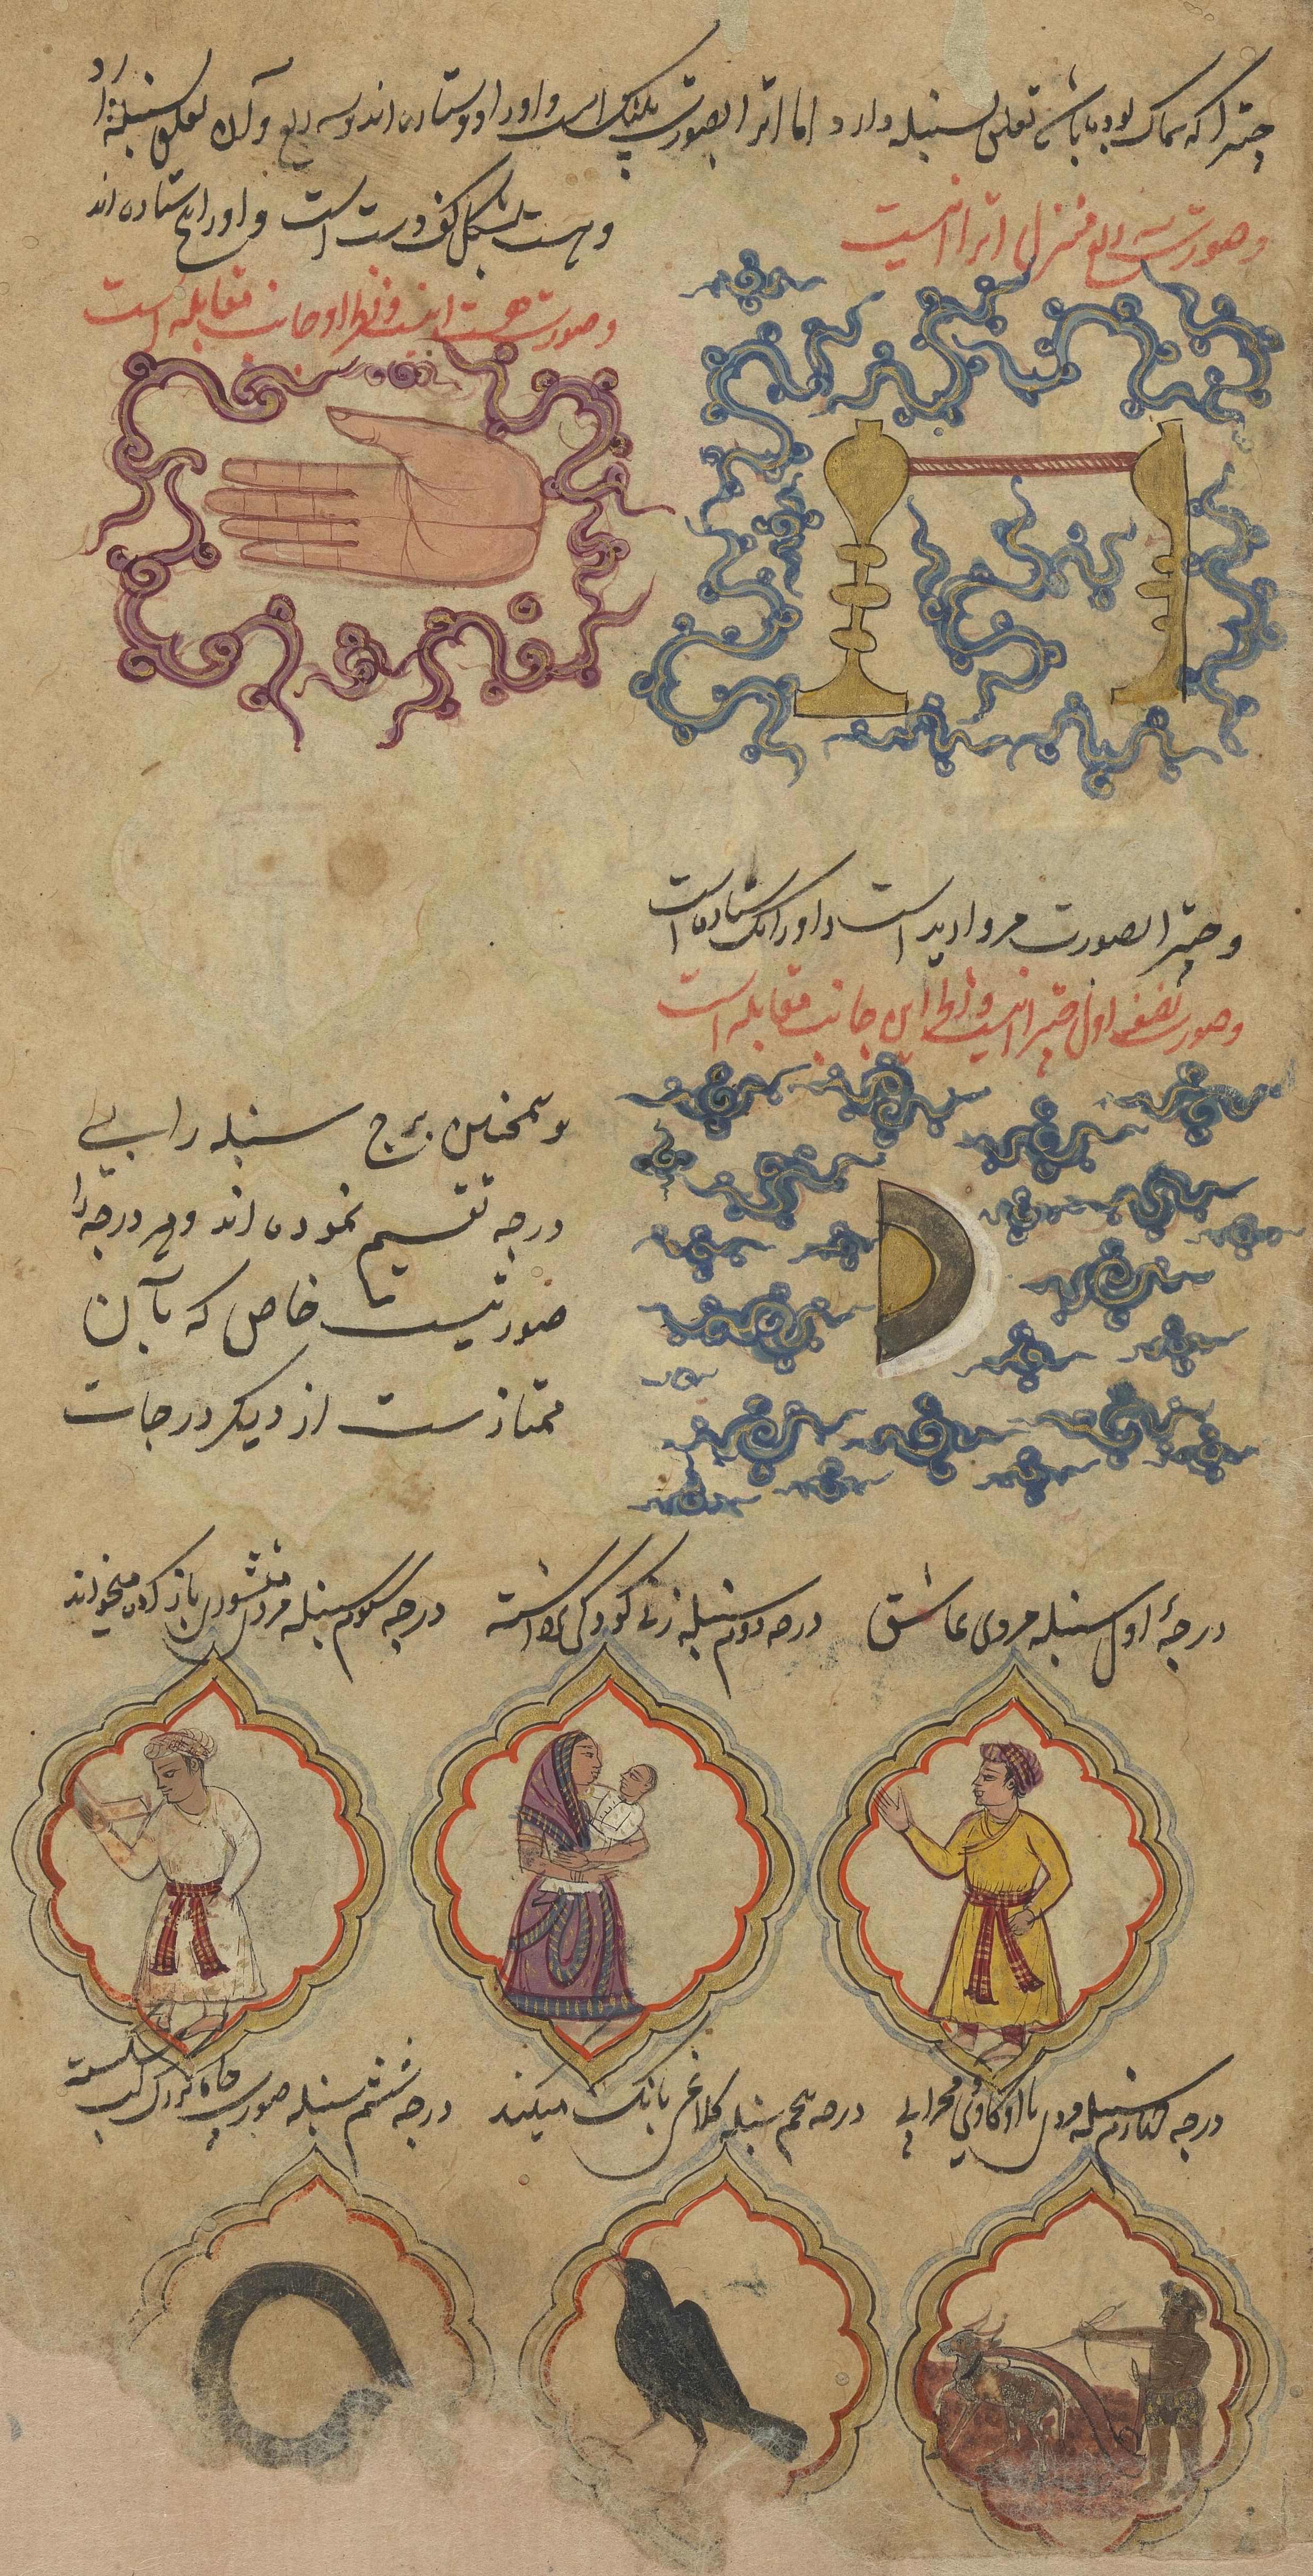 چترا که سماک بود باشد تعلق بسنبله دارد اما اترا بصورت پلنگ است و او را دو ستاره اند و سه ربع و آن تعلق بسنبله دارد
وصورت سه ربع منزل اترا اینست
وهست بشکل کف دست است و او را پنج ستاره اند
وصورت هست اینست و نظر او جانب مقابله است
و چترا بصورت مروارید است و او را یک ستاره است
وصورت نصف اول چترا اینست و نظر این جانب مقابله است
و همچنین برج سنبله را بسی
درجه تقسیم نموده اند و هر درجه را
صورتیست خاص که بآن
ممتاز ست از دیگر درجات
درجهٔ اول سنبله مردی عاشق
درجه دوم سنبله زنی کودکی برداشته
درجه سوم سنبله مردی منشوری باز کرده میخواند
درجه چهارم سنبله مردی با دو گاو
درجه پنجم سنبله کلاغی بانک میکند
درجه ششم سنبله صورت چاه